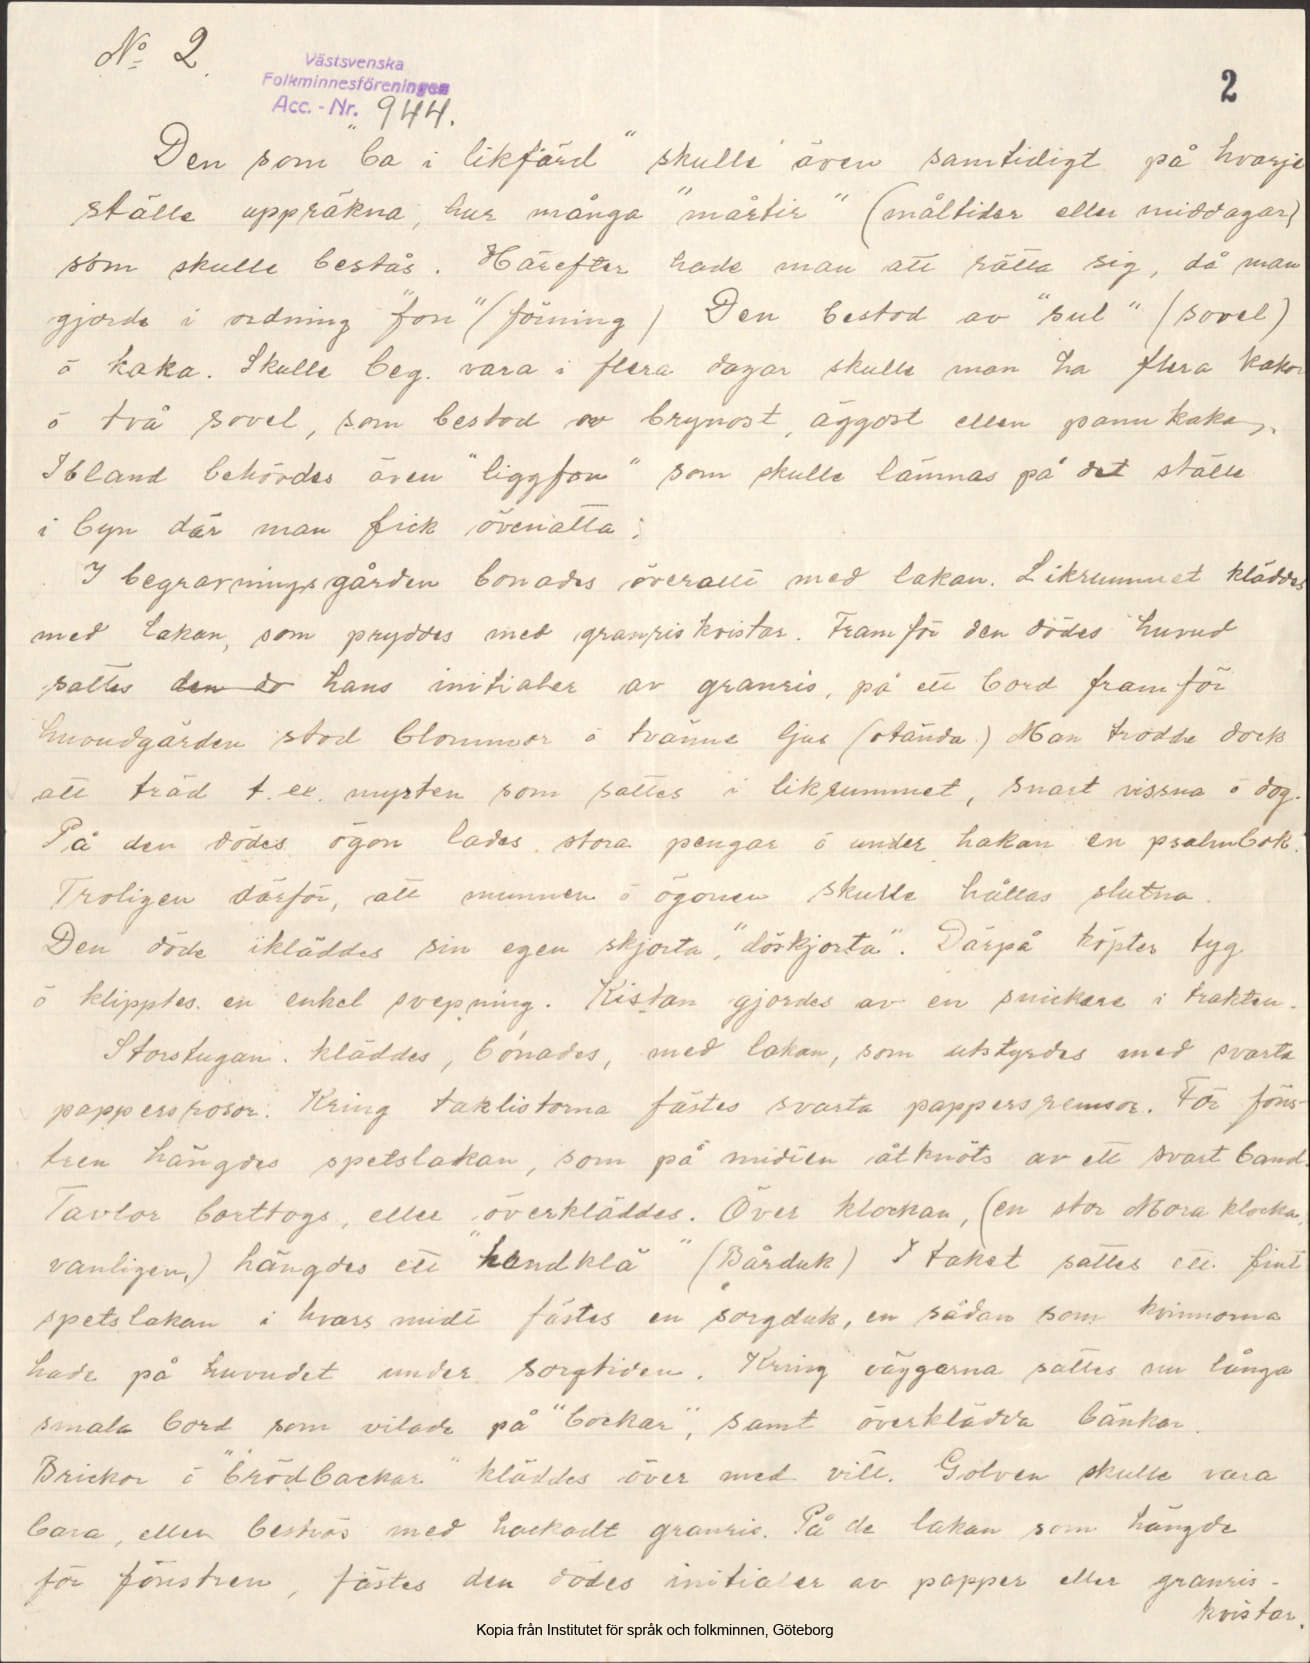 No 2.
Västsvenska
Folkminnesföreningen
Acc. - Nr. 944.
2
Den som "ba i likfärd" skulle även samtidigt på hvarje
ställe uppräkna, hur många "mårtir" (måltider eller middagar)
som skulle bestås. Härefter hade man att rätta sig, då man
gjorde i ordning "fon" (förning) Den bestod av "sul" (sovel)
ö kaka. Skulle beg. vara i flera dagar skulle man ha flera kakor
ö två sovel, som bestod av brynost, äggost eller pannkaka.
Ibland behövdes även "liggfon" som skulle lämnas på det ställe
i byn där man fick övernatta.
I begravningsgården bonades överallt med lakan. Likrummet kläddes
med lakan, som pryddes med granriskvistar. Framför den dödes huvud
sattes den dö hans initialer av granris, på ett bord framför
huvudgärden stod blommor ö tvänne ljus (otända) Man trodde dock
att träd t. ex. myrten som sattes i likrummet, snart vissna ö dog.
På den dödes ögon lades stora pengar ö under hakan en psalmbok.
Troligen därför, att munnen ö ögonen skulle hållas slutna.
Den döde ikläddes sin egen skjorta, "döskjorta". Därpå köptes tyg
ö klipptes en enkel svepning. Kistan gjordes av en snickare i trakten.
Storstugan kläddes, bonades, med lakan, som utstyrdes med svarta
pappersrosor. Kring taklistorna fästes svarta pappersremsor. För föns-
tren hängdes spetslakan, som på midten åtknöts av ett svart band.
Tavlor borttogs, eller överkläddes. Över klockan, (en stor Mora klocka,
vanligen,) hängdes ett "handklä" (Bårduk) I taket sattes ett fint
spetslakan i hvars midt fästes en sorgduk, en sådan som kvinnorna
hade på huvudet under sorgtiden. Kring väggarna sattes nu långa
smala bord som vilade på "bockar", samt överklädda bänkar.
Brickor ö "brödbackar" kläddes över med vitt. Golven skulle vara
bara, eller beströs med hackadt granris. På de lakan som hängde
för fönstren, fästes den dödes initialer av papper eller granris-
kvistar.
Kopia från Institutet för språk och folkminnen, Göteborg